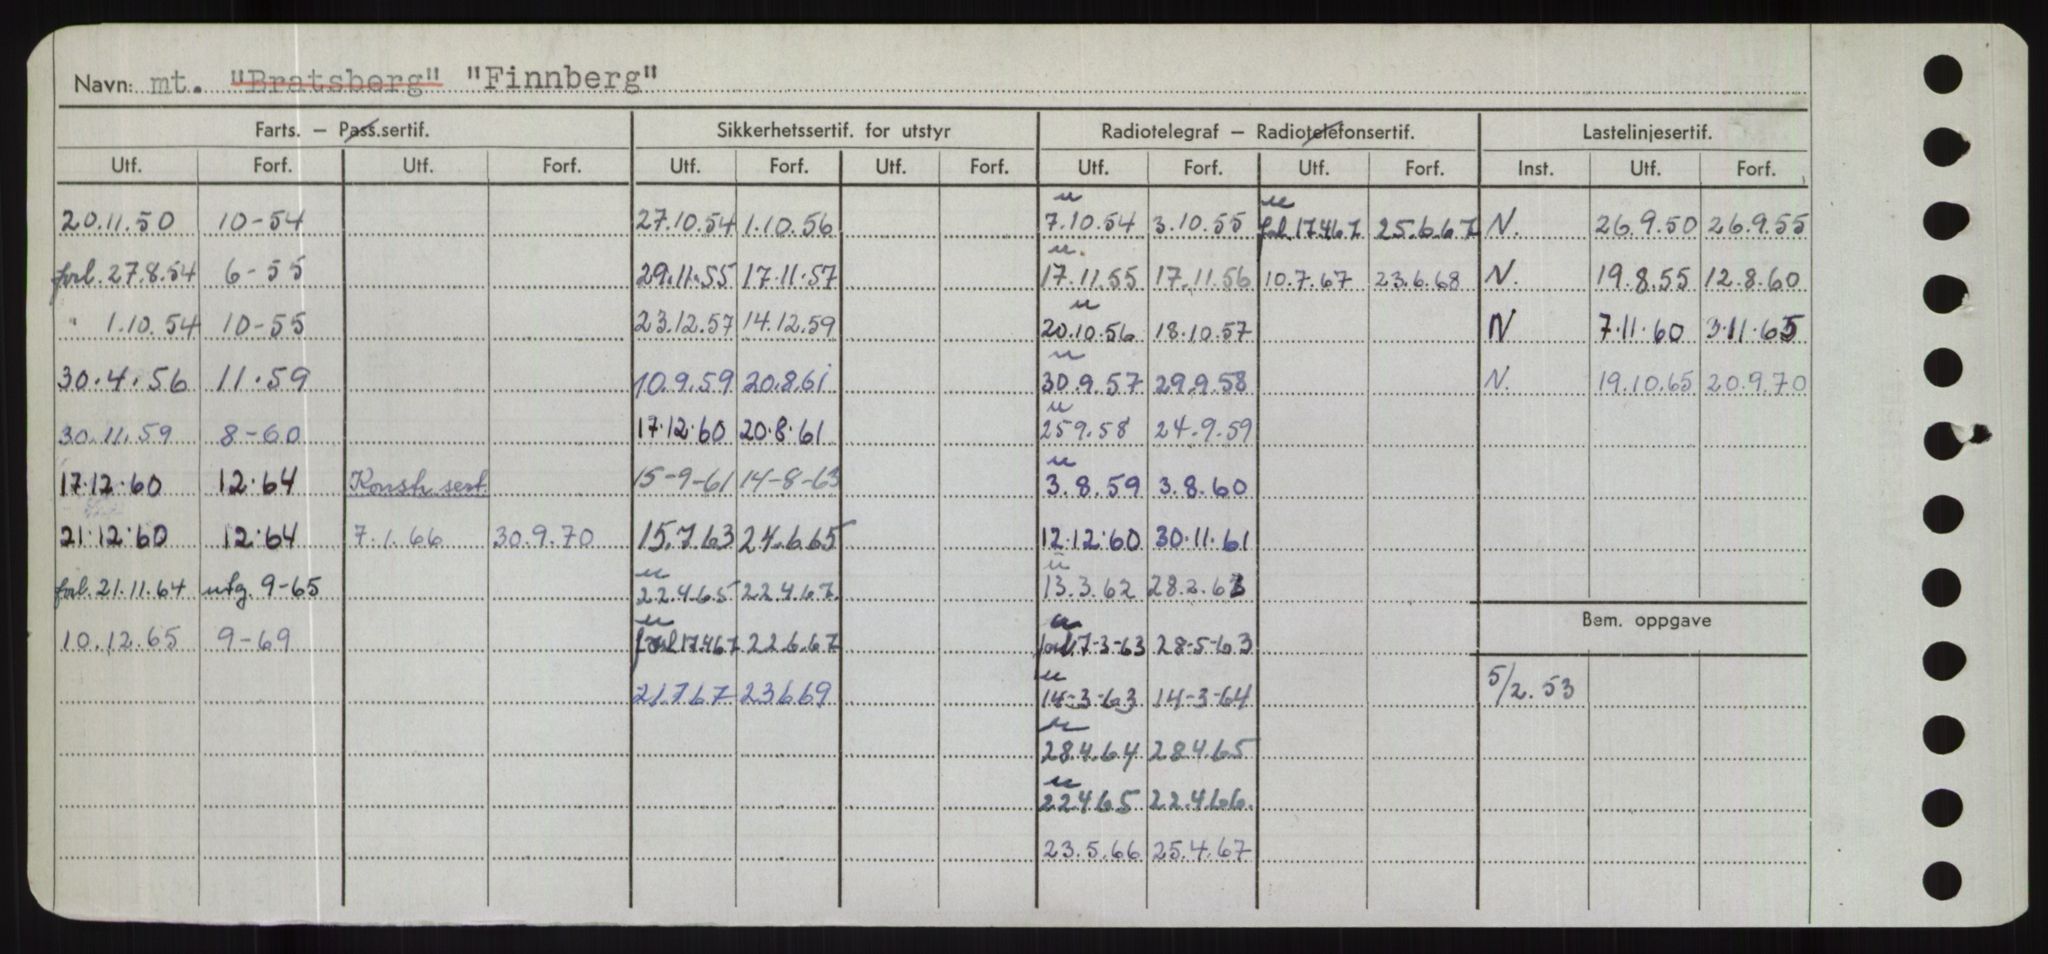 Navn: mt. "Bratsberg" "Finnberg"
Farts. – Pass.sertif. Sikkerhetssertif. for utstyr Radiotelegraf – Radiotelefonsertif. Lastelinjesertif.
Utf. Forf. Utf. Forf. Utf. Forf. Utf. Forf. Utf. Forf. Utf. Forf. Inst. Utf. Forf.
u u
20.11.50 10-54 27.10.54 1.10.56 7.10.54 3.10.55 forl. 17.4.67 25.6.67 N. 26.9.50 26.9.55
u.
forl. 27.8.54 6-55 29.11.55 17.11.57 17.11.55 17.11.56 10.7.67 23.6.68 N. 19.8.55 12.8.60
u
" 1.10.54 10-55 23.12.57 14.12.59 20.10.56 18.10.57 N 7.11.60 3.11.65
u
30.4.56 11.59 10.9.59 20.8.61 30.9.57 29.9.58 N. 19.10.65 20.9.70
u
30.11.59 8-60 17.12.60 20.8.61 25 9.58 24.9.59
u
17.12.60 12.64 Konstr. sert. 15-9-61 14-8-63 3.8.59 3.8.60
21.12.60 12.64 7.1.66 30.9.70 15.7.63 24.6.65 12.12.60 30.11.61
u u
forl. 21.11.64 utg. 9-65 22.4.65 22.4.67. 13.3.62 28.2.63
Bem. oppgave
u u
10.12.65 9-69 forl 17.4.67 22.6.67 forl. 7-3-63 28-5-63
u
21.7.67 23.6.69 14-3-63 14-3-64 5/2.53
u
28.4.64 28.4.65
u
22.4.65 22.4.66.
23.5.66 25.4.67